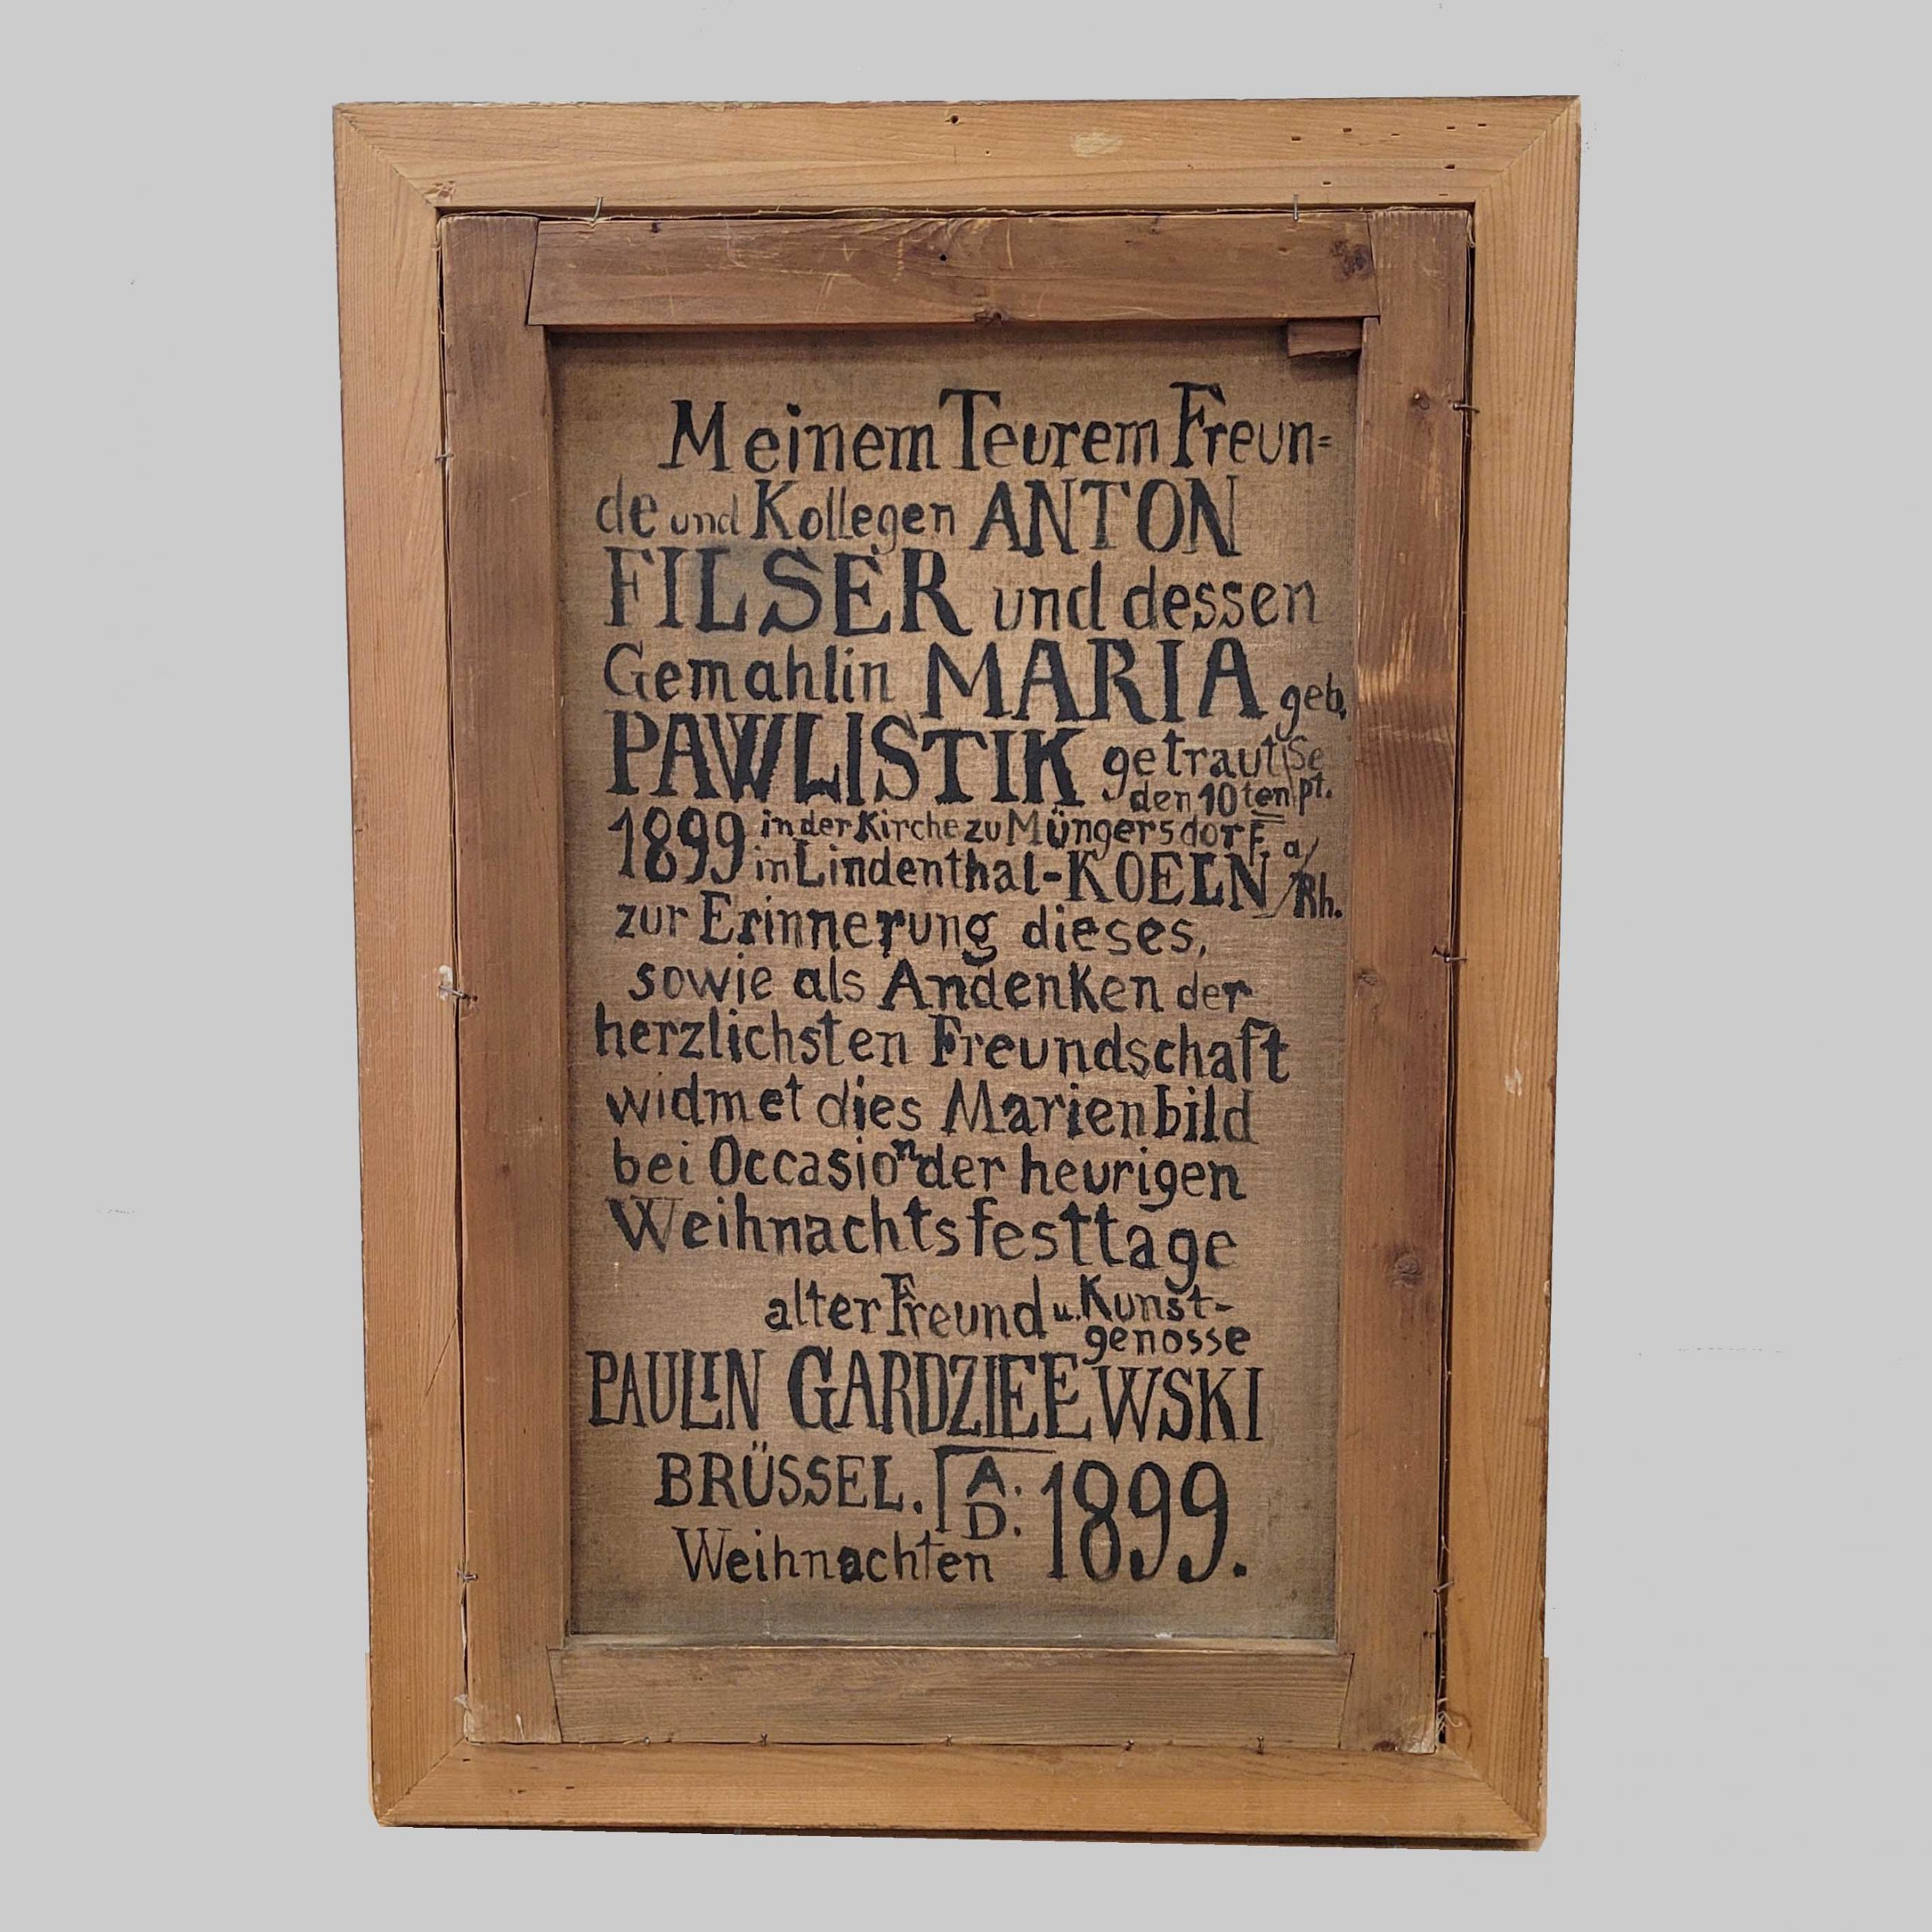 Meinem Teurem Freun=
de und Kollegen ANTON
FILSER und dessen
Gemahlin MARIA geb.
PAWLISTIK getraut
den 10ten Sept.
1899 in der Kirche zu Müngersdorf
in Lindenthal-KOELN a/Rh.
zur Erinnerung dieses,
sowie als Andenken der
herzlichsten Freundschaft
widmet dies Marienbild
bei Occasion der heurigen
Weihnachtsfesttage
alter Freund u. Kunst-
genosse
PAULIN GARDZIEEWSKI
BRÜSSEL. A. D. 1899.
Weihnachten